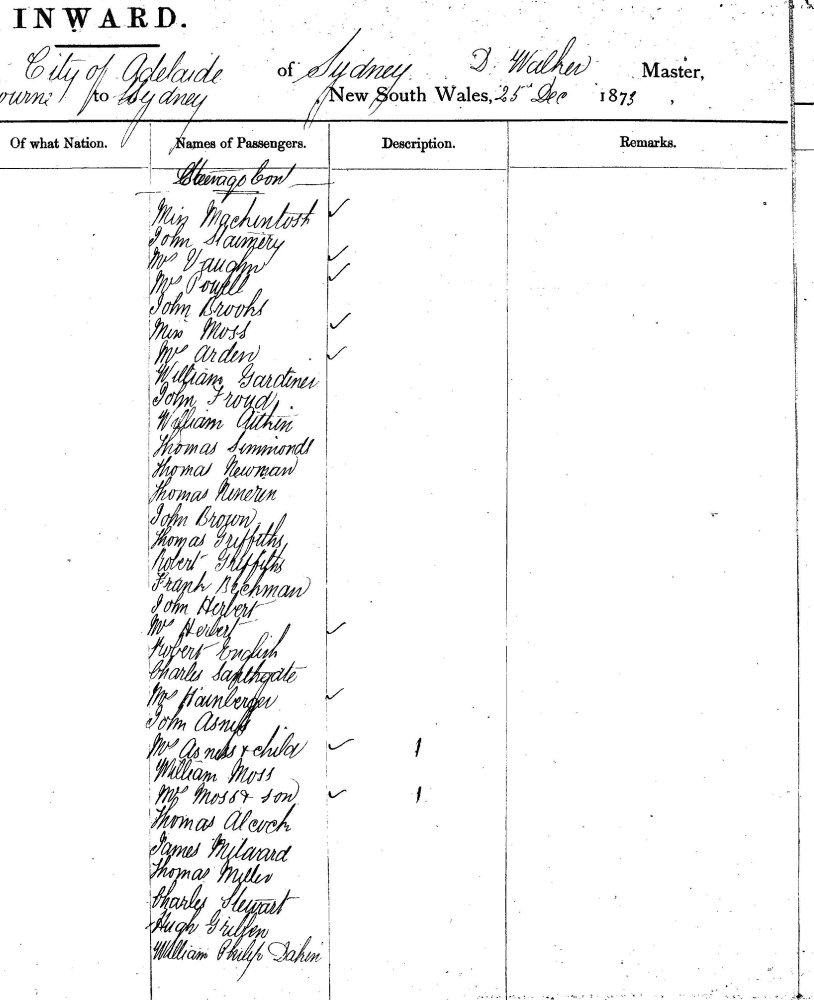 INWARD.
City of Adelaide of Sydney D. Walker Master,
to Sydney New South Wales, 25 Dec 1873,
Of what Nation. Names of Passengers. Description. Remarks.
Steerage Cont
Miss Machintosh
John
Mrs Vaughn
Mrs Powell
John Brooks
Miss Moss
Mrs Arden
William Gardiner
John Froud
William Aitkin
Thomas Simmonds
Thomas Newman
Thomas
John Brown
Thomas Griffiths
Robert Griffiths
Frank Bechman
John Herbert
Mrs Herbert
Robert English
Charles
Mrs Hainberger
John Asness
Mrs Asness & child 1
William Moss
Mrs Moss & son 1
Thomas Alcock
James Milward
Thomas Miller
Charles Stewart
Hugh Griffen
William Philip Dakin